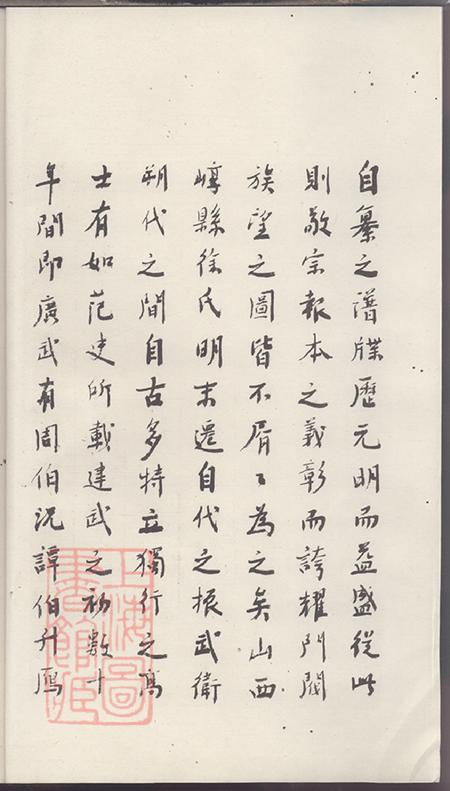 自纂之譜牒歷元明而益盛從此
則敬宗報本之義彰而誇耀門閥
族望之圖皆不屑〻為之矣山西
崞縣徐氏明末遷自代之振武衛
朔代之間自古多特立獨行之高
士有如范史所載建武之初數十
年間即廣武有周伯況譚伯升鴈
上海圖書館藏